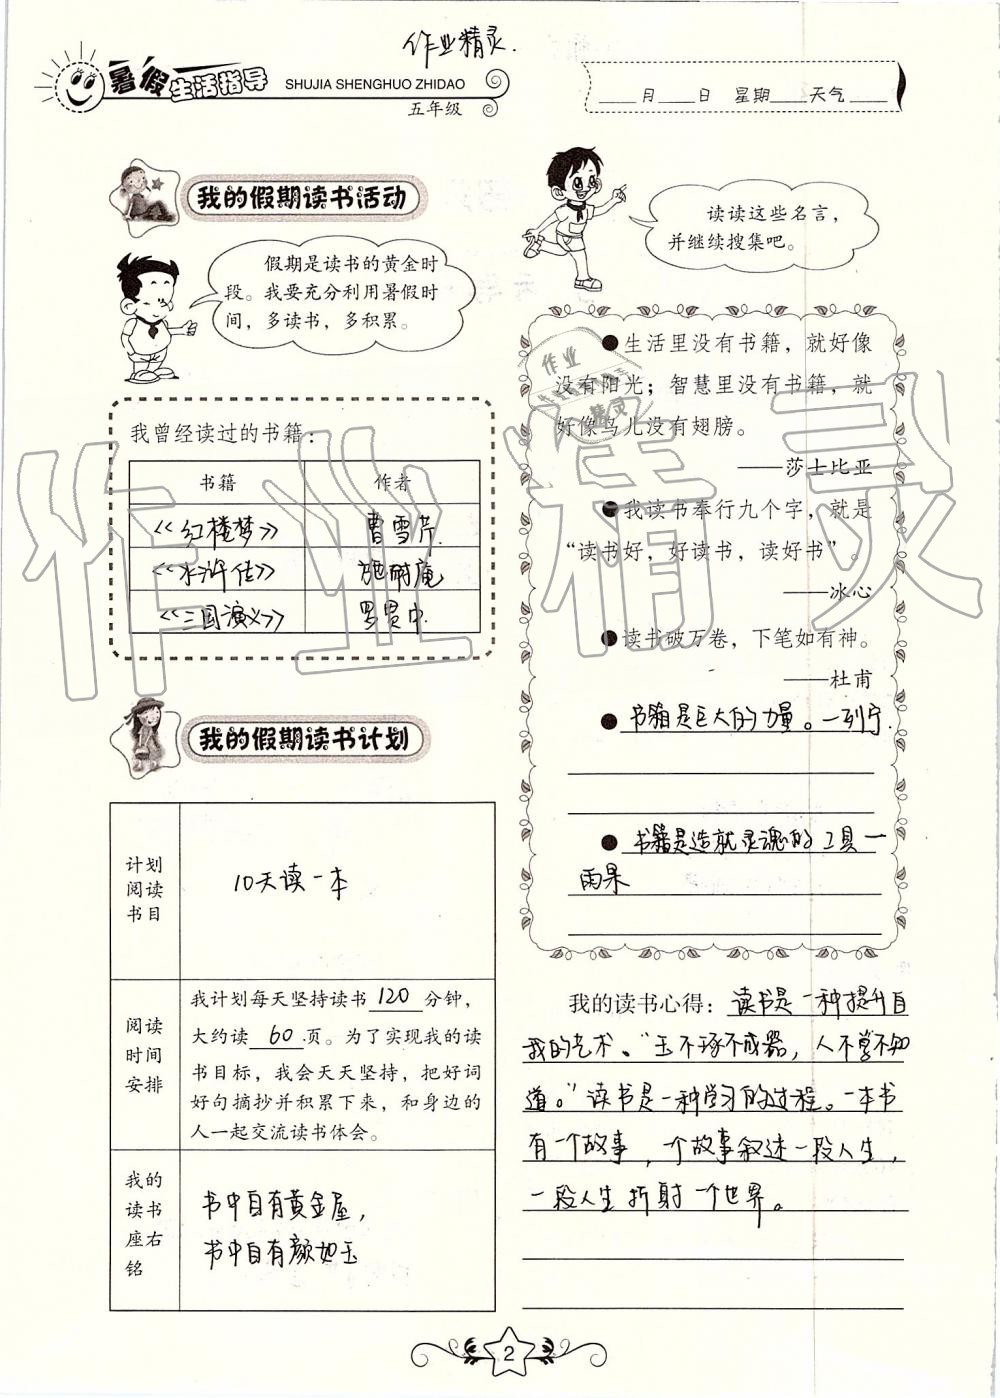 作业精灵.
暑假生活指导
SHUJIA SHENGHUO ZHIDAO
五年级
____月____日 星期____天气____
我的假期读书活动
假期是读书的黄金时
段。我要充分利用暑假时
间，多读书，多积累。
我曾经读过的书籍：
书籍 作者
《红楼梦》 曹雪芹.
《水浒传》 施耐庵
《三国演义》 罗贯中.
我的假期读书计划
计划
阅读
书目
10天读一本
阅读
时间
安排
我计划每天坚持读书120分钟，
大约读60页。为了实现我的读
书目标，我会天天坚持，把好词
好句摘抄并积累下来，和身边的
人一起交流读书体会。
我的
读书
座右
铭
书中自有黄金屋，
书中自有颜如玉
读读这些名言，
并继续搜集吧。
●生活里没有书籍，就好像
没有阳光；智慧里没有书籍，就
好像鸟儿没有翅膀。
——莎士比亚
●我读书奉行九个字，就是
“读书好，好读书，读好书”。
——冰心
●读书破万卷，下笔如有神。
——杜甫
●书籍是巨大的力量。一列宁.
●书籍是造就灵魂的工具一
雨果
我的读书心得：读书是一种提升自
我的艺术。“玉不琢不成器，人不学不知
道。”读书是一种学习的过程。一本书
有一个故事，一个故事叙述一段人生，
一段人生折射一个世界。
2
作业精灵
作业
精灵